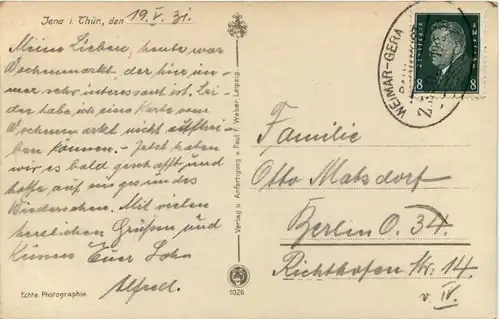 Jena i. Thür., den 19. V. 31.
Meine Lieben, heute war
Wochenmarkt, der hier im-
mer sehr interessant ist. Lei-
der habe ich eine Karte vom
Wochenmarkt nicht auftrei-
ben können. – Jetzt haben
wir es bald geschafft und
hoffe auf ein gesundes
Wiedersehen. Mit vielen
herzlichen Grüßen und
Küssen Euer Sohn
Alfred.
Echte Photographie
Verlag u. Anfertigung v. Paul F. Weber, Leipzig
1026
WEIMAR-GERA
BAHNPOST
DEUTSCHES REICH
8 8
Familie
Otto Matzdorf
Berlin O. 34
Richthofen Str. 14
v. IV.